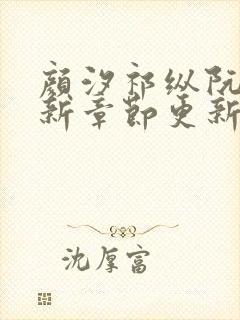 顔汐祁纵阮
新章節更新
沈厚富